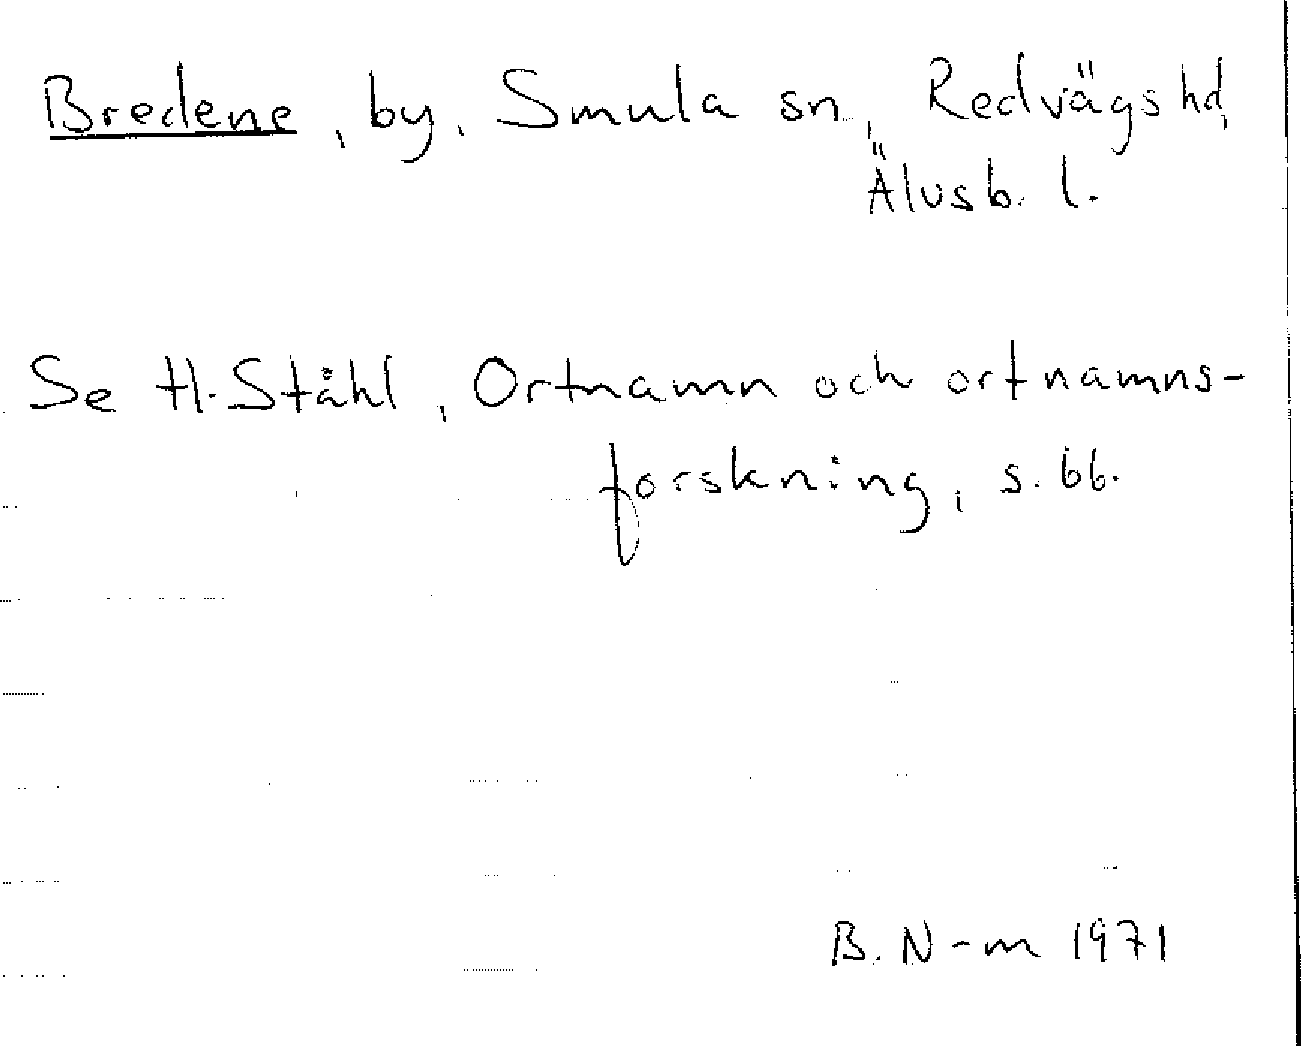 Bredene, by, Smula sn, Redvägs hd,
Älvsb. l.
Se H. Ståhl, Ortnamn och ortnamns-
forskning, s. 66.
B. N-m 1971